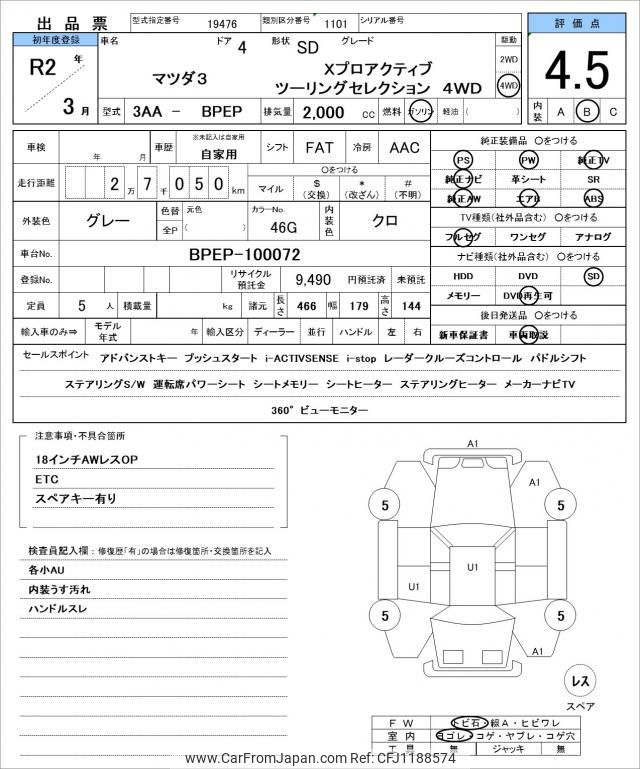 出品票 型式指定番号 19476 類別区分番号 1101 シリアル番号
評価点
4.5
内装 A B C
初年度登録 R2 年 3 月
車名 マツダ3 ドア 4 形状 SD グレード Xプロアクティブ
ツーリングセレクション 4WD
駆動 2WD 4WD
型式 3AA － BPEP 排気量 2,000 cc 燃料 ガソリン 軽油 ( )
車検 年 月 車歴 ※未記入は自家用 自家用 シフト FAT 冷房 AAC
走行距離 2万7千050km 〇をつける マイル $(交換) *(改ざん) #(不明)
外装色 グレー 色替 全P 元色 ( ) カラーNo. 46G 内装色 クロ
車台No. BPEP-100072
登録No. リサイクル預託金 9,490 円預託済 未預託
定員 5 人 積載量 kg 諸元 長さ 466 幅 179 高さ 144
輸入車のみ⇒ モデル年式 年 輸入区分 ディーラー 並行 ハンドル 左 右
純正装備品 〇をつける
PS PW 純正TV
純正ナビ 革シート SR
純正AW エアB ABS
TV種類(社外品含む) 〇をつける
フルセグ ワンセグ アナログ
ナビ種類(社外品含む) 〇をつける
HDD DVD SD
メモリー DVD再生可
後日発送品 〇をつける
新車保証書 車両取説
セールスポイント アドバンストキー プッシュスタート i-ACTIVSENSE i-stop レーダークルーズコントロール パドルシフト
ステアリングS/W 運転席パワーシート シートメモリー シートヒーター ステアリングヒーター メーカーナビTV
360°ビューモニター
注意事項・不具合箇所
18インチAWレスOP
ETC
スペアキー有り
検査員記入欄：修復歴「有」の場合は修復箇所・交換箇所を記入
各小AU
内装うす汚れ
ハンドルスレ
A1
A1
5 5
U1
U1
5 5
A1
レス
スペア
FW トビ石・線A・ヒビワレ
室内 ヨゴレ・コゲ・ヤブレ・コゲ穴
工具 無 ジャッキ 無
www.CarFromJapan.com Ref: CFJ1188574